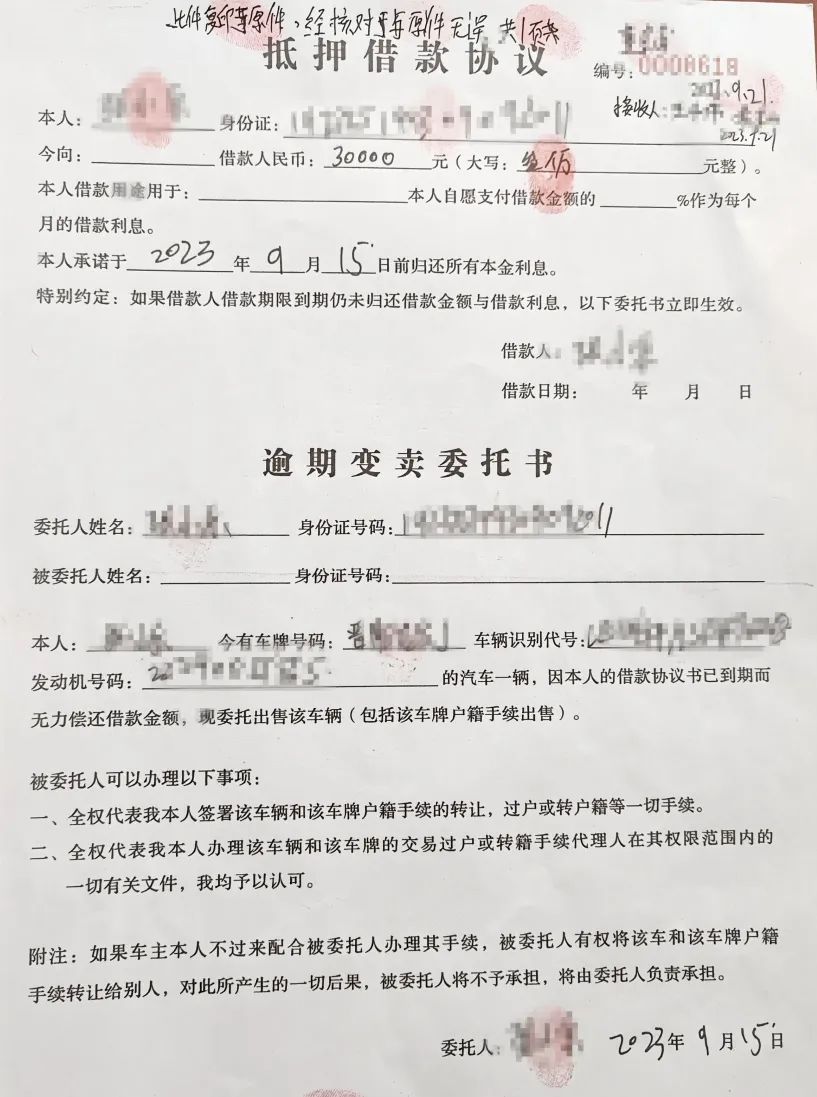 此件复印等原件,经核对于与原件无误 共1页
抵押借款协议
编号:0008618
2023.9.21.
接收人:
2023.9.21
本人: 身份证:
今向: 借款人民币:30000元(大写:叁仟 元整)。
本人借款用途用于: 本人自愿支付借款金额的 %作为每个
月的借款利息。
本人承诺于2023年9月15日前归还所有本金利息。
特别约定:如果借款人借款期限到期仍未归还借款金额与借款利息,以下委托书立即生效。
借款人:
借款日期: 年 月 日
逾期变卖委托书
委托人姓名: 身份证号码: 11
被委托人姓名: 身份证号码:
本人: 今有车牌号码:晋 车辆识别代号:
发动机号码: 的汽车一辆,因本人的借款协议书已到期而
无力偿还借款金额,现委托出售该车辆(包括该车牌户籍手续出售)。
被委托人可以办理以下事项:
一、全权代表我本人签署该车辆和该车牌户籍手续的转让,过户或转户籍等一切手续。
二、全权代表我本人办理该车辆和该车牌的交易过户或转籍手续代理人在其权限范围内的
一切有关文件,我均予以认可。
附注:如果车主本人不过来配合被委托人办理其手续,被委托人有权将该车和该车牌户籍
手续转让给别人,对此所产生的一切后果,被委托人将不予承担,将由委托人负责承担。
委托人: 2023年9月15日